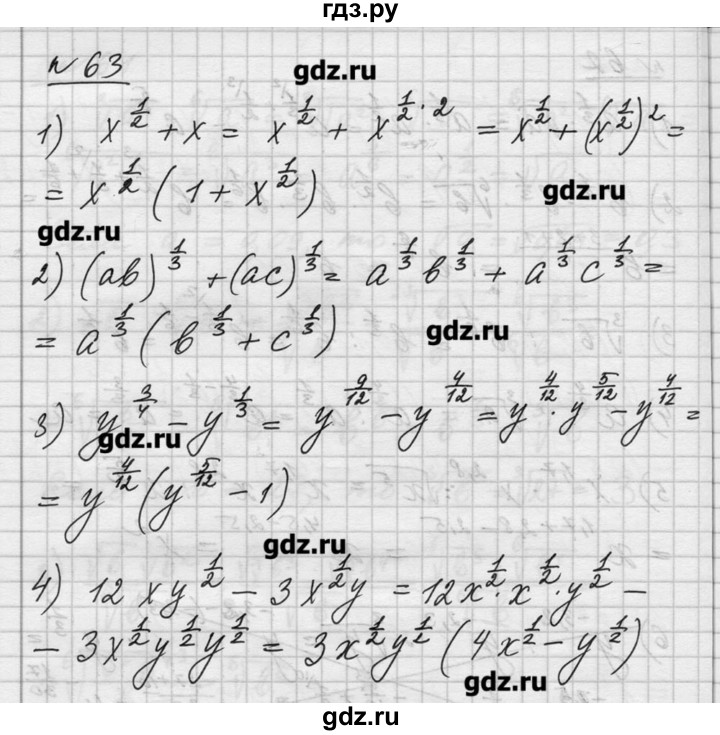 гдз.ру
№ 63
gdz.ru
1) x^{1/2} + x = x^{1/2} + x^{1/2 · 2} = x^{1/2} + (x^{1/2})^2 =
= x^{1/2} (1 + x^{1/2})
gdz.ru
gdz.ru
2) (ab)^{1/3} + (ac)^{1/3} = a^{1/3} b^{1/3} + a^{1/3} c^{1/3} =
= a^{1/3} (b^{1/3} + c^{1/3})
gdz.ru
3) y^{3/4} - y^{1/3} = y^{9/12} - y^{4/12} = y^{4/12} · y^{5/12} - y^{4/12} =
gdz.ru
= y^{4/12} (y^{5/12} - 1)
gdz.ru
4) 12xy^{1/2} - 3x^{1/2}y = 12x^{1/2} · x^{1/2} · y^{1/2} -
- 3x^{1/2}y^{1/2}y^{1/2} = 3x^{1/2}y^{1/2} (4x^{1/2} - y^{1/2})
gdz.ru
gdz.ru